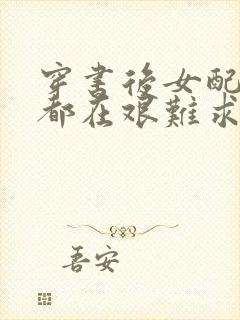 穿書後女配
都在艰難求
吾安